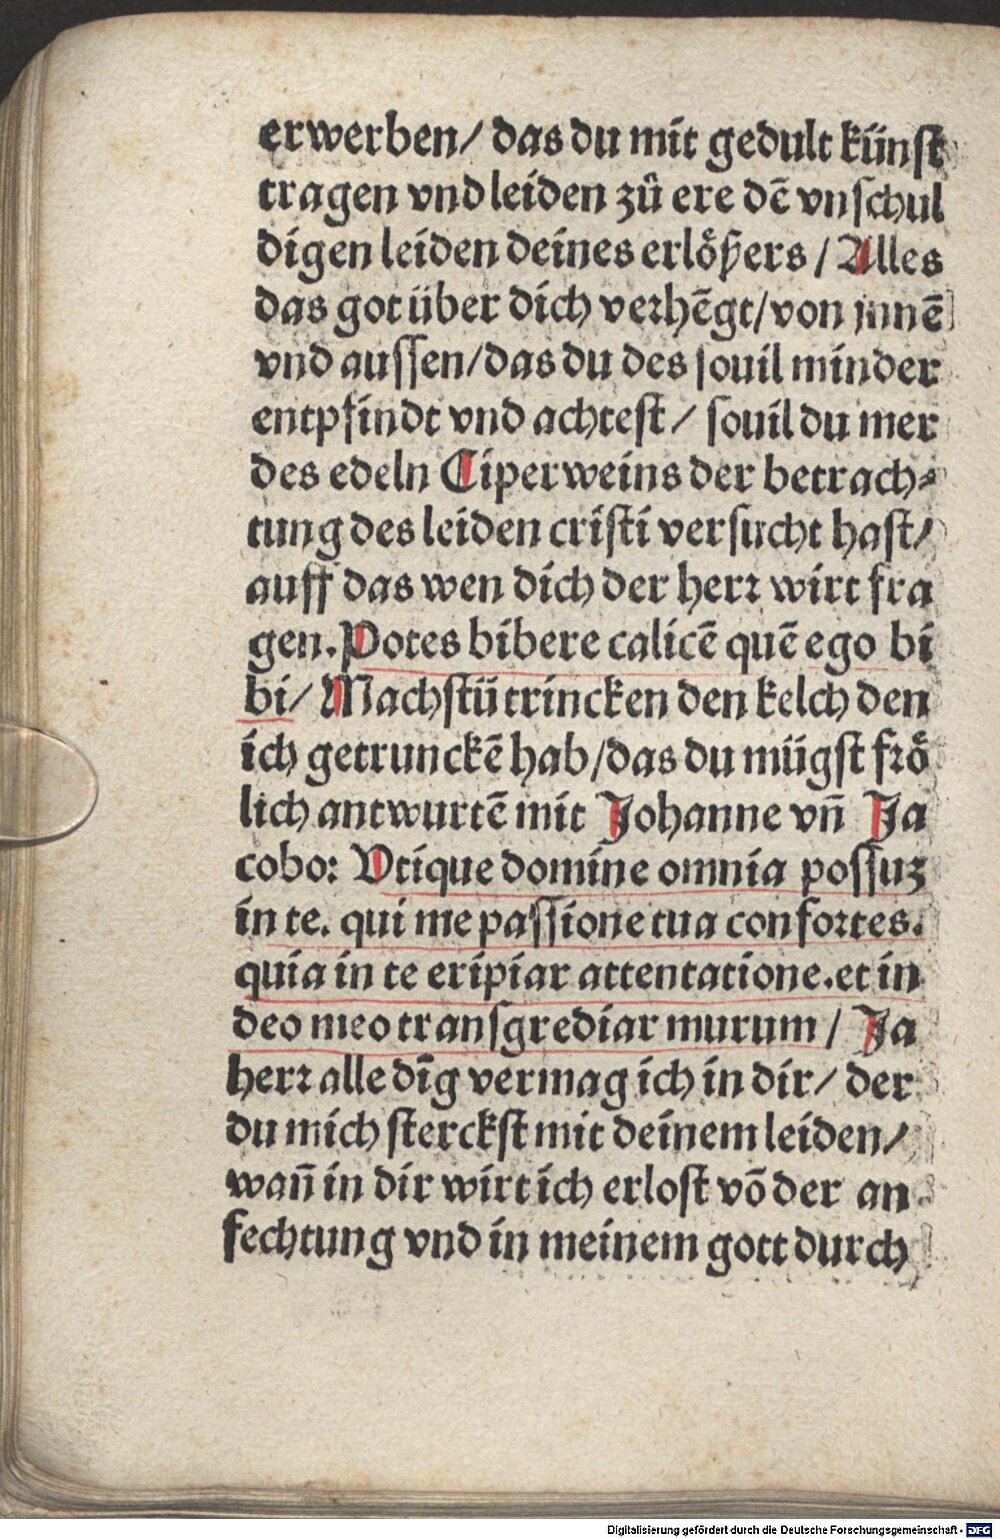 erwerben/ das du mit gedult künſt
tragen vnd leiden zů ere dē vnſchul
digen leiden deines erlößers / Alles
das got über dich verhēgt/von jnnē
vnd auſſen/das du des ſouil minder
entpfindt vnd achteſt/ ſouil du mer
des edeln Ciperweins der betrach⸗
tung des leiden criſti verſucht haſt/
auff das wen dich der herꝛ wirt fra
gen. Potes bibere calicē quē ego bi
bi/ Machſtü trincken den kelch den
ich getrunckē hab/das du mügſt frö
lich antwurtē mit Johanne vn̄ Ja
cobo: Vtique domine omnia poſſuꝫ
in te. qui me paſſione tua confoꝛtes.
quia in te eripiar attentatione.et in
deo meo tranſgrediar murum / Ja
herꝛ alle dīg vermag ich in dir/ der
du mich ſterckſt mit deinem leiden/
wan̄ in dir wirt ich erloſt vō der an
fechtung vnd in meinem gott durch
Digitalisierung gefördert durch die Deutsche Forschungsgemeinschaft - DFG